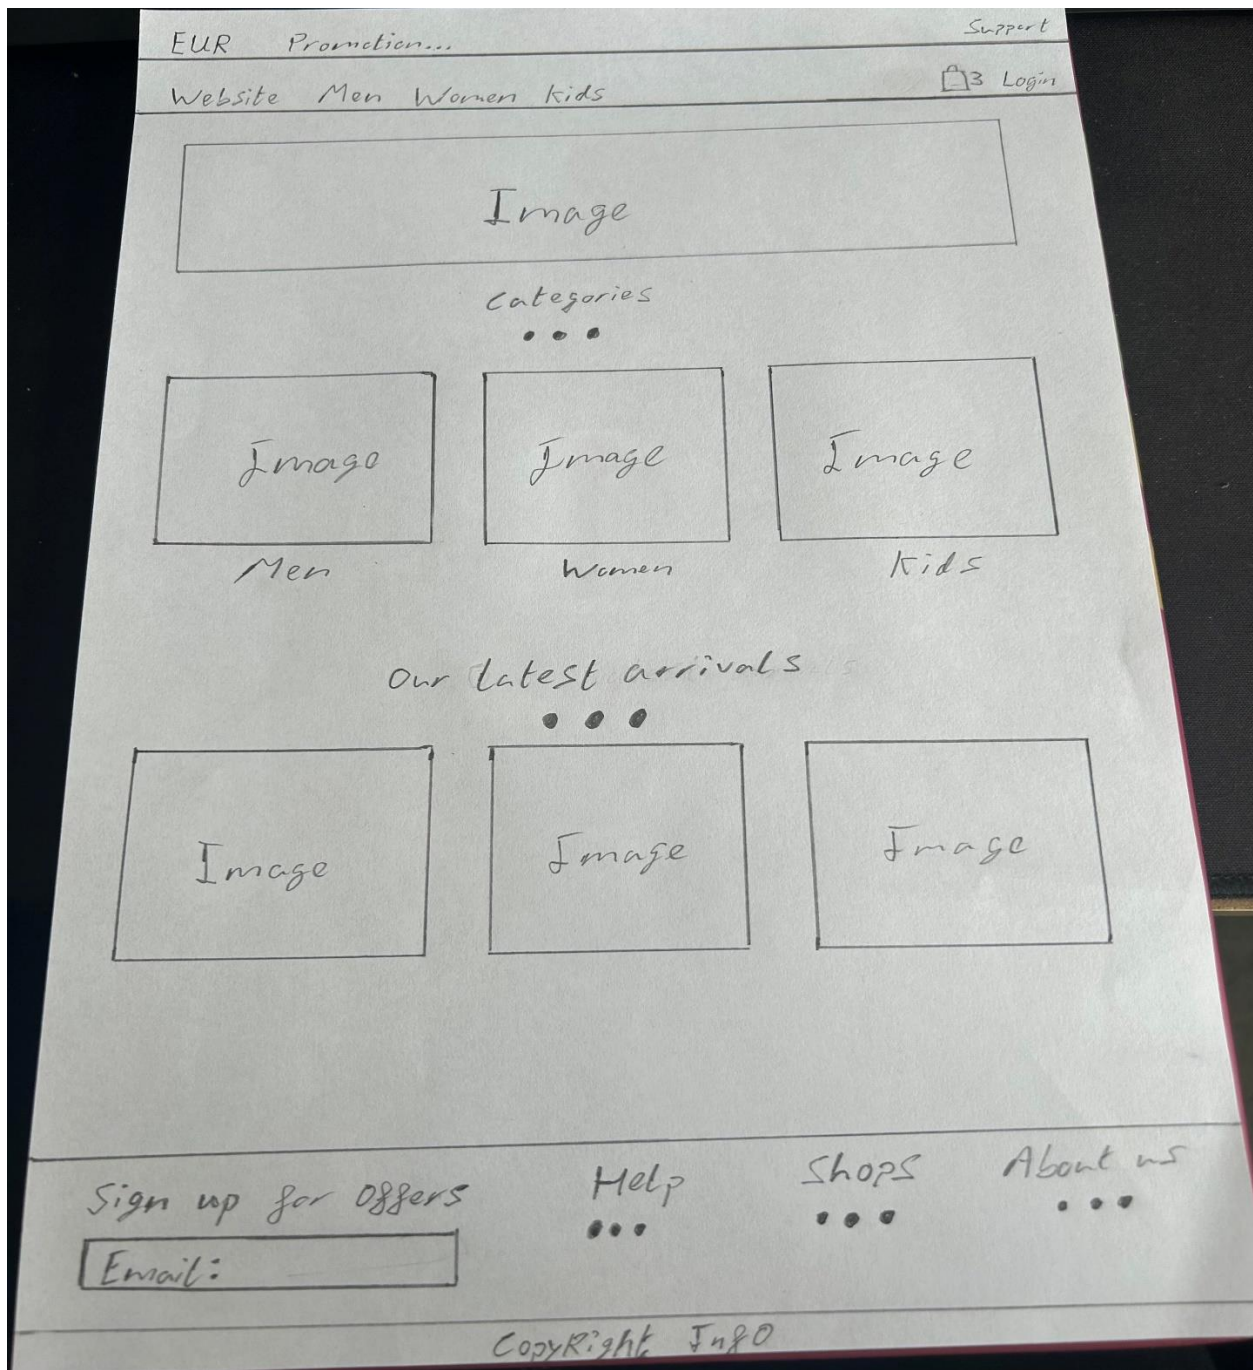 EUR Promotion... Support
Website Men Women Kids 3 Login
Image
Categories
Image Image Image
Men Women Kids
Our latest arrivals
Image Image Image
Sign up for Offers Help Shops About us
Email:
CopyRight Info